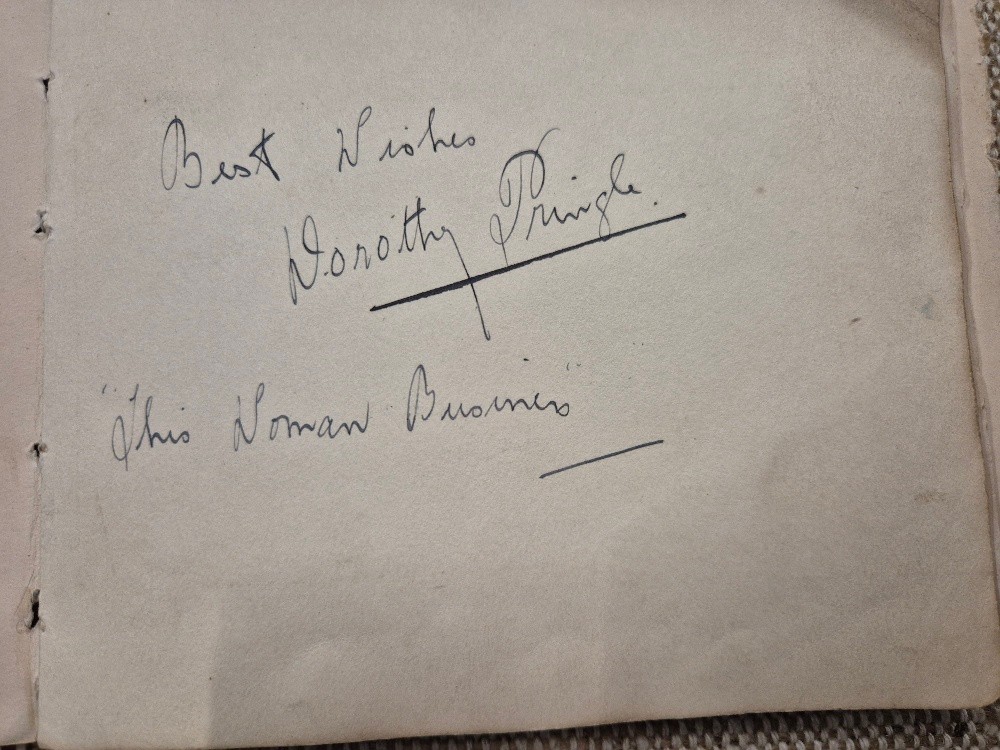 Best Wishes
Dorothy Pringle.
"This Woman Business"